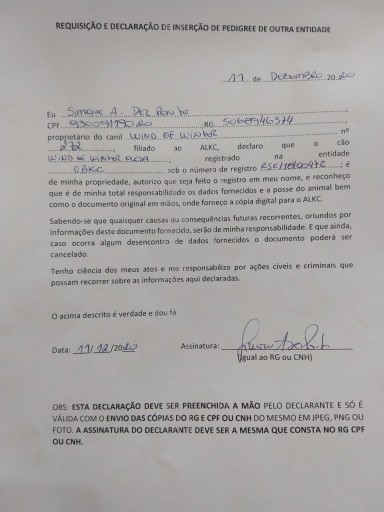 REQUISIÇÃO E DECLARAÇÃO DE INSERÇÃO DE PEDIGREE DE OUTRA ENTIDADE
11 de DEZEMBRO 2020
Eu SIMONE A. DEL PONTE
CPF RG 5068946374
proprietário do canil WIND OF WINTER nº
272, filiado ao ALKC, declaro que o cão
WIND OF WINTER registrado na entidade
CBKC sob o número de registro é
de minha propriedade, autorizo que seja feito o registro em meu nome, e reconheço
que é de minha total responsabilidade os dados fornecidos e a posse do animal bem
como o documento original em mãos, onde forneço a cópia digital para o ALKC.
Sabendo-se que quaisquer causas ou consequências futuras recorrentes, oriundos por
informações deste documento fornecido, serão de minha responsabilidade. E que ainda,
caso ocorra algum desencontro de dados fornecidos o documento poderá ser
cancelado.
Tenho ciência dos meus atos e me responsabilizo por ações cíveis e criminais que
possam recorrer sobre as informações aqui declaradas.
O acima descrito é verdade e dou fé
Data: 11/12/2020 Assinatura:
(igual ao RG ou CNH)
OBS: ESTA DECLARAÇÃO DEVE SER PREENCHIDA A MÃO PELO DECLARANTE E SÓ É
VÁLIDA COM O ENVIO DAS CÓPIAS DO RG E CPF OU CNH DO MESMO EM JPEG, PNG OU
FOTO. A ASSINATURA DO DECLARANTE DEVE SER A MESMA QUE CONSTA NO RG CPF
OU CNH.